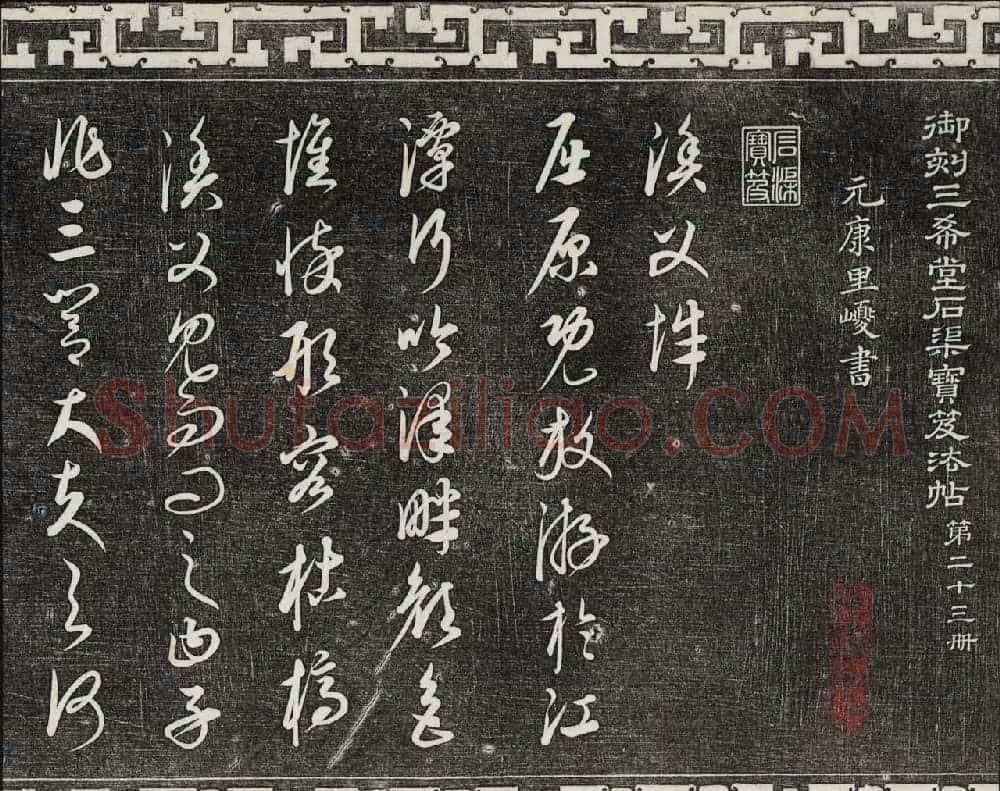 御刻三希堂石渠寶笈法帖 第二十三册
元康里巎書
石渠寶笈
漁父辭
屈原既放游於江
潭行吟澤畔顔色
憔悴形容枯槁
漁父見而問之曰子
非三閭大夫與何
Shufaziliao.COM